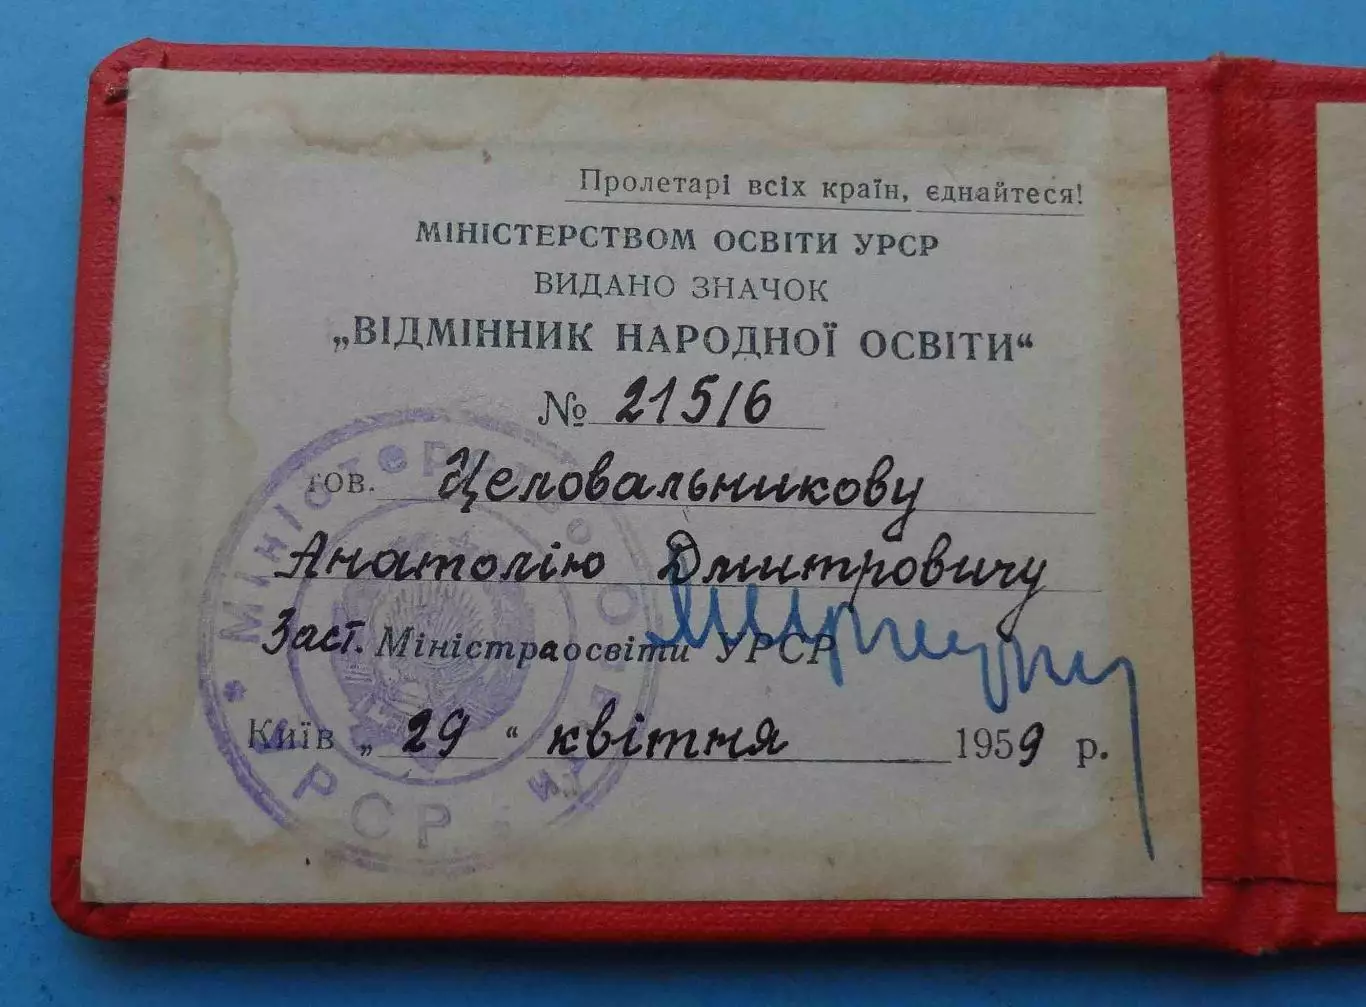 Пролетарі всіх країн, єднайтеся!
МІНІСТЕРСТВОМ ОСВІТИ УРСР
ВИДАНО ЗНАЧОК
„ВІДМІННИК НАРОДНОЇ ОСВІТИ“
№ 21516
тов. Целовальникову
Анатолію Дмитровичу
Заст. Міністра освіти УРСР
Київ „29“ квітня 1959 р.
МІНІСТЕРСТВО ОСВІТИ
УРСР